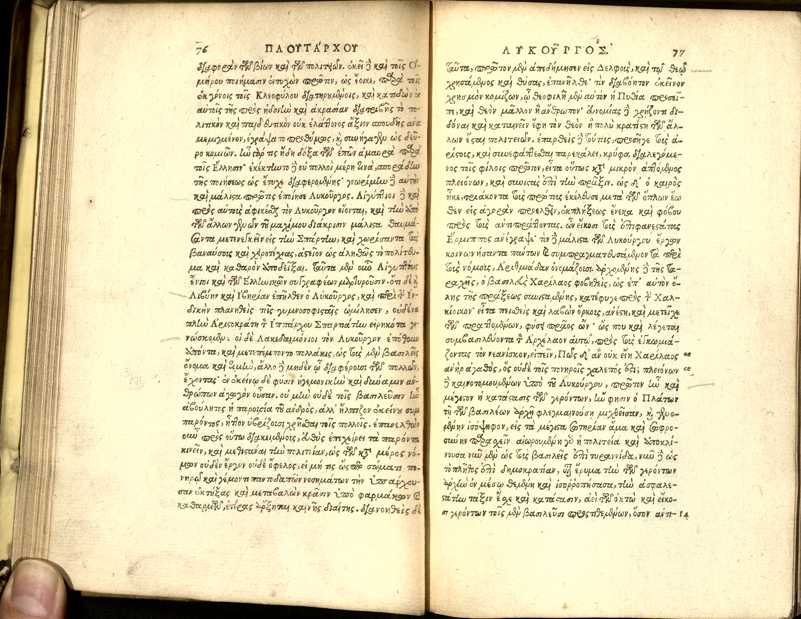 76 ΠΛΟΥΤΑΡΧΟΥ
διαφορὰν τῶν βίων καὶ τῶν πολιτειῶν. ἐκεῖ δὲ καὶ τοῖς Ὁ-
μήρου ποιήμασιν ἐντυχὼν πρῶτον, ὡς ἔοικε, παρὰ τοῖς
ἐκγόνοις τοῖς Κλεοφύλου διατηρουμένοις, καὶ κατιδὼν ἐν
αὐτοῖς τῆς πρὸς ἡδονὴν καὶ ἀκρασίαν διατριβῆς τὸ πο-
λιτικὸν καὶ παιδευτικὸν οὐκ ἐλάττονος ἄξιον σπουδῆς ἀνα
μεμιγμένον, ἐγράψατο προθύμως, καὶ συνήγαγεν ὡς δεῦ-
ρο κομιῶν. ἦν γάρ τις ἤδη δόξα τῶν ἐπῶν ἀμαυρὰ παρὰ
τοῖς Ἕλλησιν· ἐκέκτηντο δὲ οὐ πολλοὶ μέρη τινά, σποράδην
τῆς ποιήσεως ὡς ἔτυχε διαφερομένης· γνωρίμην δὲ αὐτὴν
καὶ μάλιστα πρῶτος ἐποίησε Λυκοῦργος. Αἰγύπτιοι δὲ καὶ
πρὸς αὐτοὺς ἀφικέσθαι τὸν Λυκοῦργον οἴονται, καὶ τὴν ἀπὸ
τῶν ἄλλων γενῶν τοῦ μαχίμου διάκρισιν μάλιστα θαυμά-
σαντα μετενεγκεῖν εἰς τὴν Σπάρτην, καὶ χωρίσαντα τοὺς
βαναύσους καὶ χειροτέχνας, ἀστεῖον ὡς ἀληθῶς τὸ πολίτευ-
μα καὶ καθαρὸν ἀποδεῖξαι. ταῦτα μὲν οὖν Αἰγυπτίοις
ἔνιοι καὶ τῶν Ἑλληνικῶν συγγραφέων μαρτυροῦσιν. ὅτι δὲ καὶ
Λιβύην καὶ Ἰβηρίαν ἐπῆλθεν ὁ Λυκοῦργος, καὶ περὶ τὴν Ἰν-
δικὴν πλανηθεὶς τοῖς γυμνοσοφισταῖς ὡμίλησεν, οὐδένα
πλὴν Ἀριστοκράτη τὸν Ἱππάρχου Σπαρτιάτην εἰρηκότα γι-
νώσκομεν. οἱ δὲ Λακεδαιμόνιοι τὸν Λυκοῦργον ἐπόθουν
ἀπόντα, καὶ μετεπέμποντο πολλάκις, ὡς τοὺς μὲν βασιλεῖς
ὄνομα καὶ τιμὴν, ἄλλο δὲ μηδὲν ᾧ διαφέρουσι τῶν πολλῶν,
ἔχοντας· ἐν ἐκείνῳ δὲ φύσιν ἡγεμονικὴν καὶ δύναμιν ἀν-
θρώπων ἀγωγὸν οὖσαν. οὐ μὴν οὐδὲ τοῖς βασιλεῦσιν ἦν
ἀβούλητος ἡ παρουσία τοῦ ἀνδρός, ἀλλ' ἤλπιζον ἐκείνου συμ-
παρόντος, ἧττον ὑβρίζουσι χρήσεσθαι τοῖς πολλοῖς. ἐπανελθὼν
οὖν πρὸς οὕτω διακειμένους, εὐθὺς ἐπεχείρει τὰ παρόντα
κινεῖν, καὶ μεθιστάναι τὴν πολιτείαν, ὡς τῶν κατὰ μέρος νό-
μων οὐδὲν ἔργον οὐδὲ ὄφελος, εἰ μή τις ὥσπερ σώματι πο-
νηρῷ καὶ γέμοντι παντοδαπῶν νοσημάτων τὴν ὑπάρχου-
σαν ἐκτήξας καὶ μεταβαλὼν κρᾶσιν ὑπὸ φαρμάκων καὶ
καθαρμῶν, ἑτέρας ἄρξεται καινῆς διαίτης. διανοηθεὶς δὲ
ΛΥΚΟΥΡΓΟΣ 77
ταῦτα, πρῶτον μὲν ἀπεδήμησεν εἰς Δελφούς, καὶ τῷ θεῷ
χρησάμενος καὶ θύσας, ἐπανῆλθε τὸν διαβόητον ἐκεῖνον
χρησμὸν κομίζων, ᾧ θεοφιλῆ μὲν αὐτὸν ἡ Πυθία προσεῖ-
πε, καὶ θεὸν μᾶλλον ἢ ἄνθρωπον· εὐνομίας δὲ χρῄζοντι δι-
δόναι καὶ καταινεῖν ἔφη τὸν θεὸν ἣ πολὺ κρατίστη τῶν ἄλ-
λων ἔσται πολιτειῶν. ἐπαρθεὶς δὲ τούτοις, προσῆγε τοὺς ἀ-
ρίστους, καὶ συνεφάπτεσθαι παρεκάλει, κρύφα διαλεγόμε-
νος τοῖς φίλοις πρῶτον, εἶτα οὕτως κατὰ μικρὸν ἁπτόμενος
πλειόνων, καὶ συνιστὰς ἐπὶ τὴν πρᾶξιν. ὡς δ' ὁ καιρὸς
ἧκε, τριάκοντα τοὺς πρώτους ἐκέλευσε μετὰ τῶν ὅπλων ἕω
θεν εἰς ἀγορὰν προελθεῖν, ἐκπλήξεως ἕνεκα καὶ φόβου
πρὸς τοὺς ἀντιπράττοντας. ὧν εἴκοσι τοὺς ἐπιφανεστάτους
Ἕρμιππος ἀνέγραψε· τὸν δὲ μάλιστα τῶν Λυκούργου ἔργων
κοινωνήσαντα πάντων καὶ συμπραγματευσάμενον τὰ περὶ
τοὺς νόμους, Ἀρθμιάδαν ὀνομάζουσι. ἀρχομένης δὲ τῆς τα-
ραχῆς, ὁ βασιλεὺς Χαρίλαος φοβηθεὶς, ὡς ἐπ' αὐτὸν ὅ-
λης τῆς πράξεως συνισταμένης, κατέφυγε πρὸς τὴν Χαλ-
κίοικον· εἶτα πεισθεὶς καὶ λαβὼν ὅρκους, ἀνέστη, καὶ μετεῖχε
τῶν πραττομένων, φύσει πρᾶος ὤν· ὥς που καὶ λέγεται
συμβασιλεύοντα τὸν Ἀρχέλαον αὐτῷ, πρὸς τοὺς ἐγκωμιά-
ζοντας τὸν νεανίσκον, εἰπεῖν, Πῶς δ' ἂν οὐκ εἴη Χαρίλαος
ἀνὴρ ἀγαθός, ὃς οὐδὲ τοῖς πονηροῖς χαλεπός ἐστι; πλειόνων
δὲ καινοτομουμένων ὑπὸ τοῦ Λυκούργου, πρῶτον ἦν καὶ
μέγιστον ἡ κατάστασις τῶν γερόντων, ἥν φησιν ὁ Πλάτων
τῇ τῶν βασιλέων ἀρχῇ φλεγμαινούσῃ μιχθεῖσαν, καὶ γενο-
μένην ἰσόψηφον, εἰς τὰ μέγιστα σωτηρίαν ἅμα καὶ σωφρο-
σύνην παρασχεῖν. αἰωρουμένη γὰρ ἡ πολιτεία καὶ ἀποκλί-
νουσα νῦν μὲν ὡς τοὺς βασιλεῖς ἐπὶ τυραννίδα, νῦν δὲ ὡς
τὸ πλῆθος ἐπὶ δημοκρατίαν, οἷον ἕρμα τὴν τῶν γερόντων
ἀρχὴν ἐν μέσῳ θεμένη καὶ ἰσορροπήσασα, τὴν ἀσφαλε-
στάτην τάξιν ἔσχε καὶ κατάστασιν, ἀεὶ τῶν ὀκτὼ καὶ εἴκο-
σι γερόντων τοῖς μὲν βασιλεῦσι προστιθεμένων, ὅσον ἀντι-